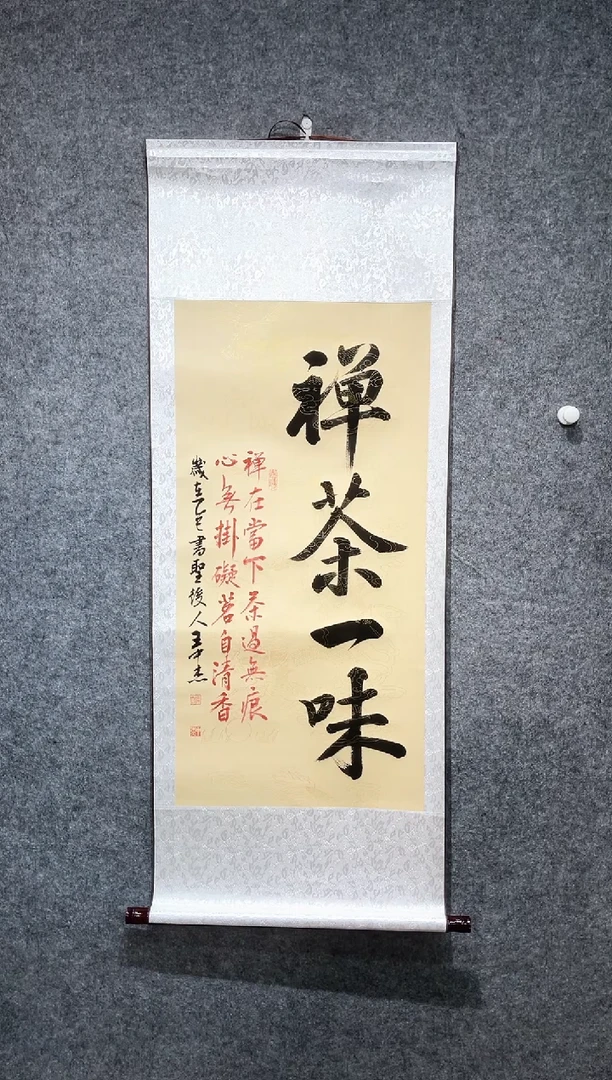 禅茶一味
禅在當下茶過無痕
心無掛礙茗自清香
歲在乙巳書聖後人王中杰